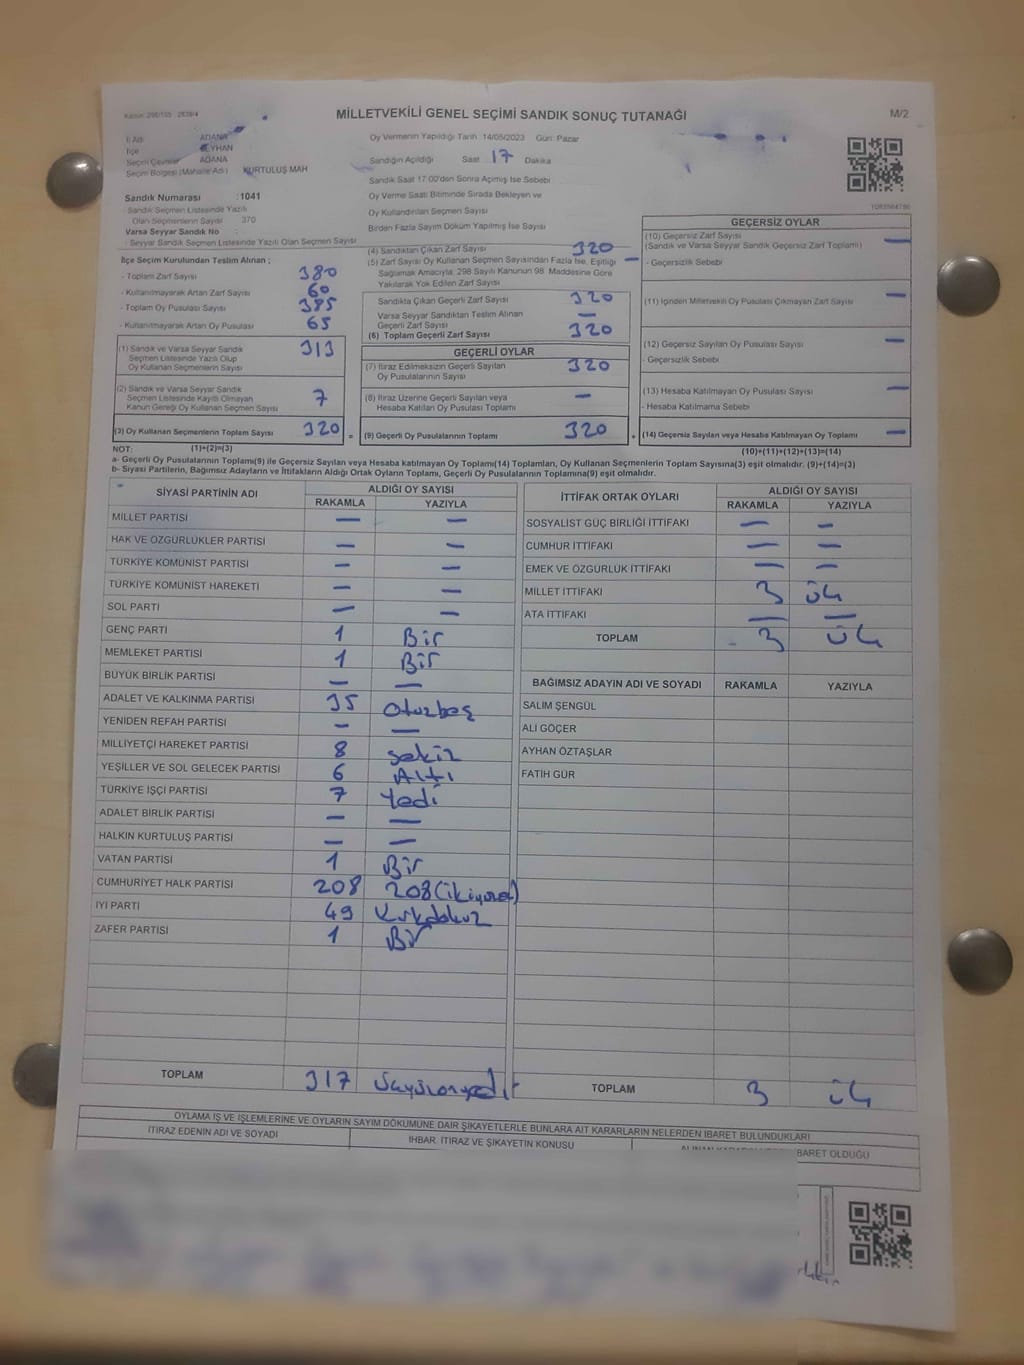 MİLLETVEKİLİ GENEL SEÇİMİ SANDIK SONUÇ TUTANAĞI
M/2
İl Adı ADANA
İlçe SEYHAN
Seçim Çevresi ADANA
Seçim Bölgesi (Mahalle Adı) KURTULUŞ MAH
Sandık Numarası :1041
Sandık Seçmen Listesinde Yazılı
Olan Seçmenlerin Sayısı 370
Varsa Seyyar Sandık No
Seyyar Sandık Seçmen Listesinde Yazılı Olan Seçmen Sayısı
İlçe Seçim Kurulundan Teslim Alınan ;
- Toplam Zarf Sayısı 380
- Kullanılmayarak Artan Zarf Sayısı 60
- Toplam Oy Pusulası Sayısı 385
- Kullanılmayarak Artan Oy Pusulası 65
(1) Sandık ve Varsa Seyyar Sandık
Seçmen Listesinde Yazılı Olup
Oy Kullanan Seçmenlerin Sayısı 313
(2) Sandık ve Varsa Seyyar Sandık
Seçmen Listesinde Kayıtlı Olmayan
Kanun Gereği Oy Kullanan Seçmen Sayısı 7
(3) Oy Kullanan Seçmenlerin Toplam Sayısı 320
(1)+(2)=(3)
Oy Vermenin Yapıldığı Tarih 14/05/2023 Gün: Pazar
Sandığın Açıldığı Saat 17 Dakika
Sandık Saat 17:00'den Sonra Açılmış İse Sebebi
Oy Verme Saati Bitiminde Sırada Bekleyen ve
Oy Kullandırılan Seçmen Sayısı
Birden Fazla Sayım Döküm Yapılmış İse Sayısı
(4) Sandıktan Çıkan Zarf Sayısı 320
(5) Zarf Sayısı Oy Kullanan Seçmen Sayısından Fazla İse, Eşitliği —
Sağlamak Amacıyla; 298 Sayılı Kanunun 98. Maddesine Göre
Yakılarak Yok Edilen Zarf Sayısı
Sandıkta Çıkan Geçerli Zarf Sayısı 320
Varsa Seyyar Sandıktan Teslim Alınan
Geçerli Zarf Sayısı —
(6) Toplam Geçerli Zarf Sayısı 320
GEÇERLİ OYLAR
(7) İtiraz Edilmeksizin Geçerli Sayılan
Oy Pusulalarının Sayısı 320
(8) İtiraz Üzerine Geçerli Sayılan veya
Hesaba Katılan Oy Pusulası Toplamı —
= (9) Geçerli Oy Pusulalarının Toplamı 320
GEÇERSİZ OYLAR
(10) Geçersiz Zarf Sayısı —
(Sandık ve Varsa Seyyar Sandık Geçersiz Zarf Toplamı)
- Geçersizlik Sebebi
(11) İçinden Milletvekili Oy Pusulası Çıkmayan Zarf Sayısı —
(12) Geçersiz Sayılan Oy Pusulası Sayısı —
- Geçersizlik Sebebi
(13) Hesaba Katılmayan Oy Pusulası Sayısı —
- Hesaba Katılmama Sebebi
+ (14) Geçersiz Sayılan veya Hesaba Katılmayan Oy Toplamı —
(10)+(11)+(12)+(13)=(14)
NOT:
a- Geçerli Oy Pusulalarının Toplamı(9) ile Geçersiz Sayılan veya Hesaba katılmayan Oy Toplamı(14) Toplamları, Oy Kullanan Seçmenlerin Toplam Sayısına(3) eşit olmalıdır. (9)+(14)=(3)
b- Siyasi Partilerin, Bağımsız Adayların ve İttifakların Aldığı Ortak Oyların Toplamı, Geçerli Oy Pusulalarının Toplamına(9) eşit olmalıdır.
SİYASİ PARTİNİN ADI ALDIĞI OY SAYISI
RAKAMLA YAZIYLA
MİLLET PARTİSİ — —
HAK VE ÖZGÜRLÜKLER PARTİSİ — —
TÜRKİYE KOMÜNİST PARTİSİ — —
TÜRKİYE KOMÜNİST HAREKETİ — —
SOL PARTİ — —
GENÇ PARTİ 1 Bir
MEMLEKET PARTİSİ 1 Bir
BÜYÜK BİRLİK PARTİSİ — —
ADALET VE KALKINMA PARTİSİ 35 otuzbeş
YENİDEN REFAH PARTİSİ — —
MİLLİYETÇİ HAREKET PARTİSİ 8 sekiz
YEŞİLLER VE SOL GELECEK PARTİSİ 6 Altı
TÜRKİYE İŞÇİ PARTİSİ 7 Yedi
ADALET BİRLİK PARTİSİ — —
HALKIN KURTULUŞ PARTİSİ — —
VATAN PARTİSİ 1 Bir
CUMHURİYET HALK PARTİSİ 208 208
İYİ PARTİ 49 Kırkdokuz
ZAFER PARTİSİ 1 Bir
TOPLAM 317
İTTİFAK ORTAK OYLARI ALDIĞI OY SAYISI
RAKAMLA YAZIYLA
SOSYALİST GÜÇ BİRLİĞİ İTTİFAKI — —
CUMHUR İTTİFAKI — —
EMEK VE ÖZGÜRLÜK İTTİFAKI — —
MİLLET İTTİFAKI 3 üç
ATA İTTİFAKI — —
TOPLAM 3 üç
BAĞIMSIZ ADAYIN ADI VE SOYADI RAKAMLA YAZIYLA
SALİM ŞENGÜL
ALİ GÖÇER
AYHAN ÖZTAŞLAR
FATİH GÜR
TOPLAM 3 üç
OYLAMA İŞ VE İŞLEMLERİNE VE OYLARIN SAYIM DÖKÜMÜNE DAİR ŞİKAYETLERLE BUNLARA AİT KARARLARIN NELERDEN İBARET BULUNDUKLARI
İTİRAZ EDENİN ADI VE SOYADI
İHBAR, İTİRAZ VE ŞİKAYETİN KONUSU
BARET OLDUĞU